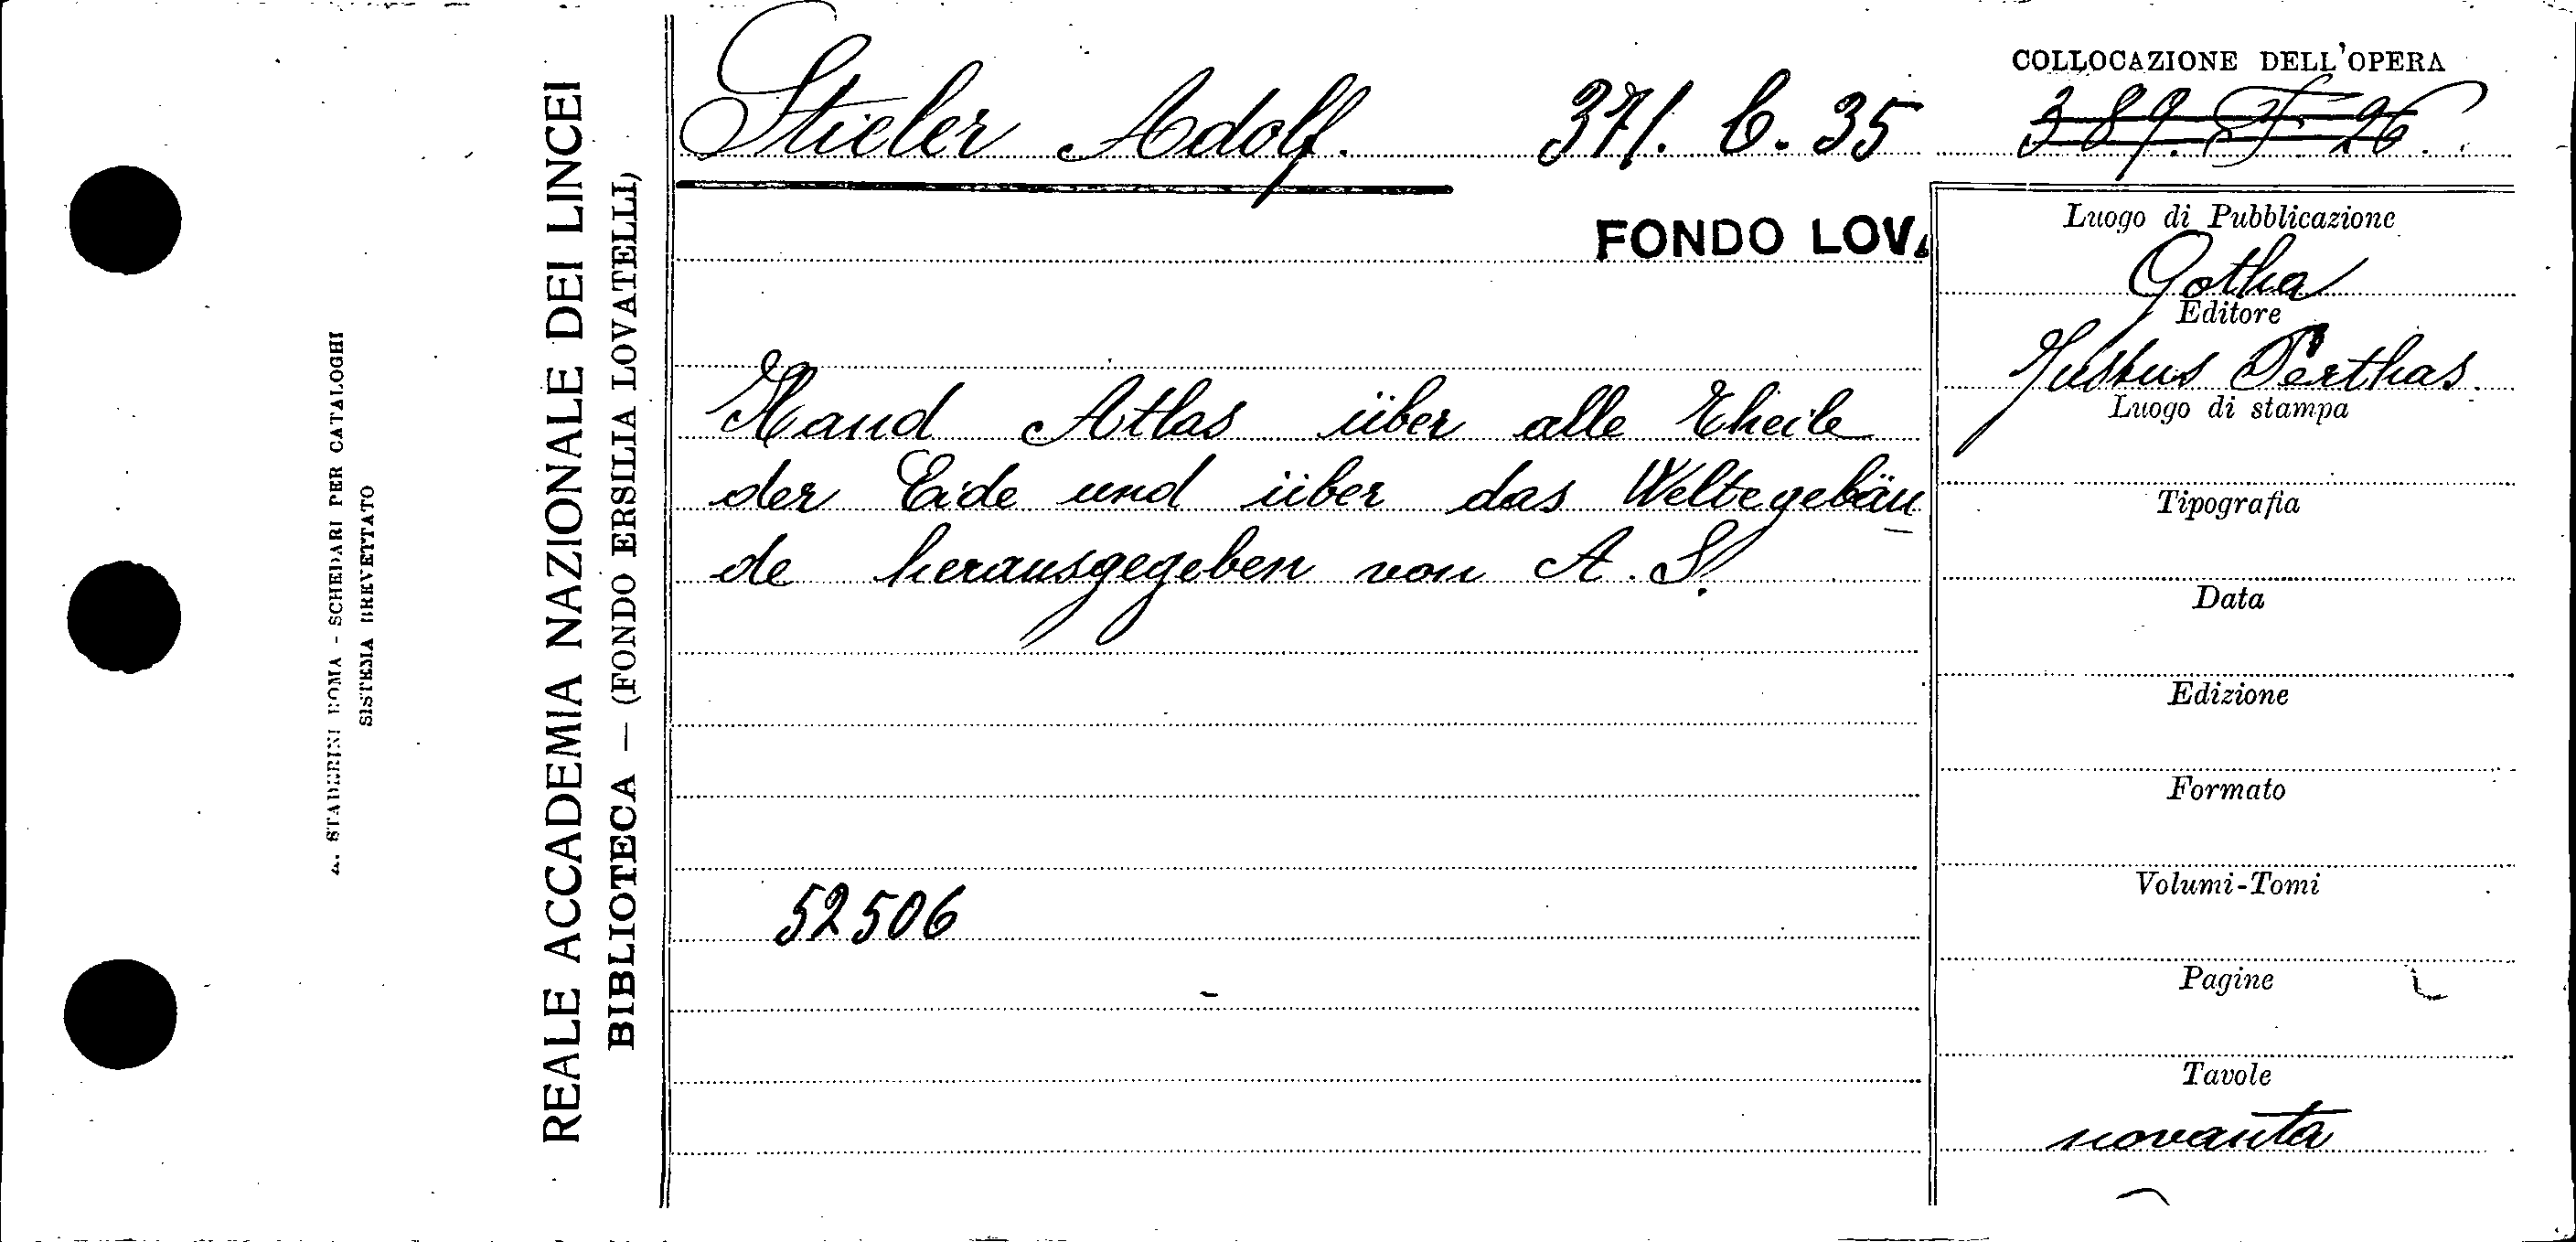 COLLOCAZIONE DELL'OPERA
Stieler Adolf. 371. C. 35 389. F. 26.
FONDO LOVA
Hand Atlas über alle Theile
der Erde und über das Weltegebäu
de herausgegeben von A. S.
52506
Luogo di Pubblicazione
Gotha
Editore
Justus Perthas.
Luogo di stampa
Tipografia
Data
Edizione
Formato
Volumi-Tomi
Pagine
Tavole
novanta
REALE ACCADEMIA NAZIONALE DEI LINCEI
BIBLIOTECA — (FONDO ERSILIA LOVATELLI)
A. STADERINI ROMA - SCHEDARI PER CATALOGHI
SISTEMA BREVETTATO